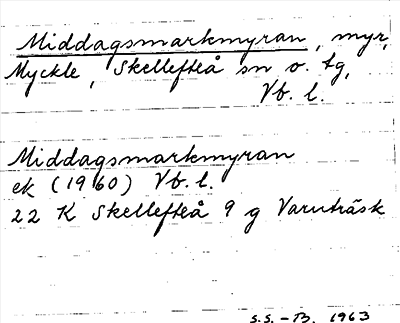 Middagsmarkmyran, myr,
Myckle, Skellefteå sn o. tg,
Vb. l.
Middagsmarkmyran
ek (1960) Vb. l.
22 K Skellefteå 9 g Varuträsk
S.S. - B. 1963